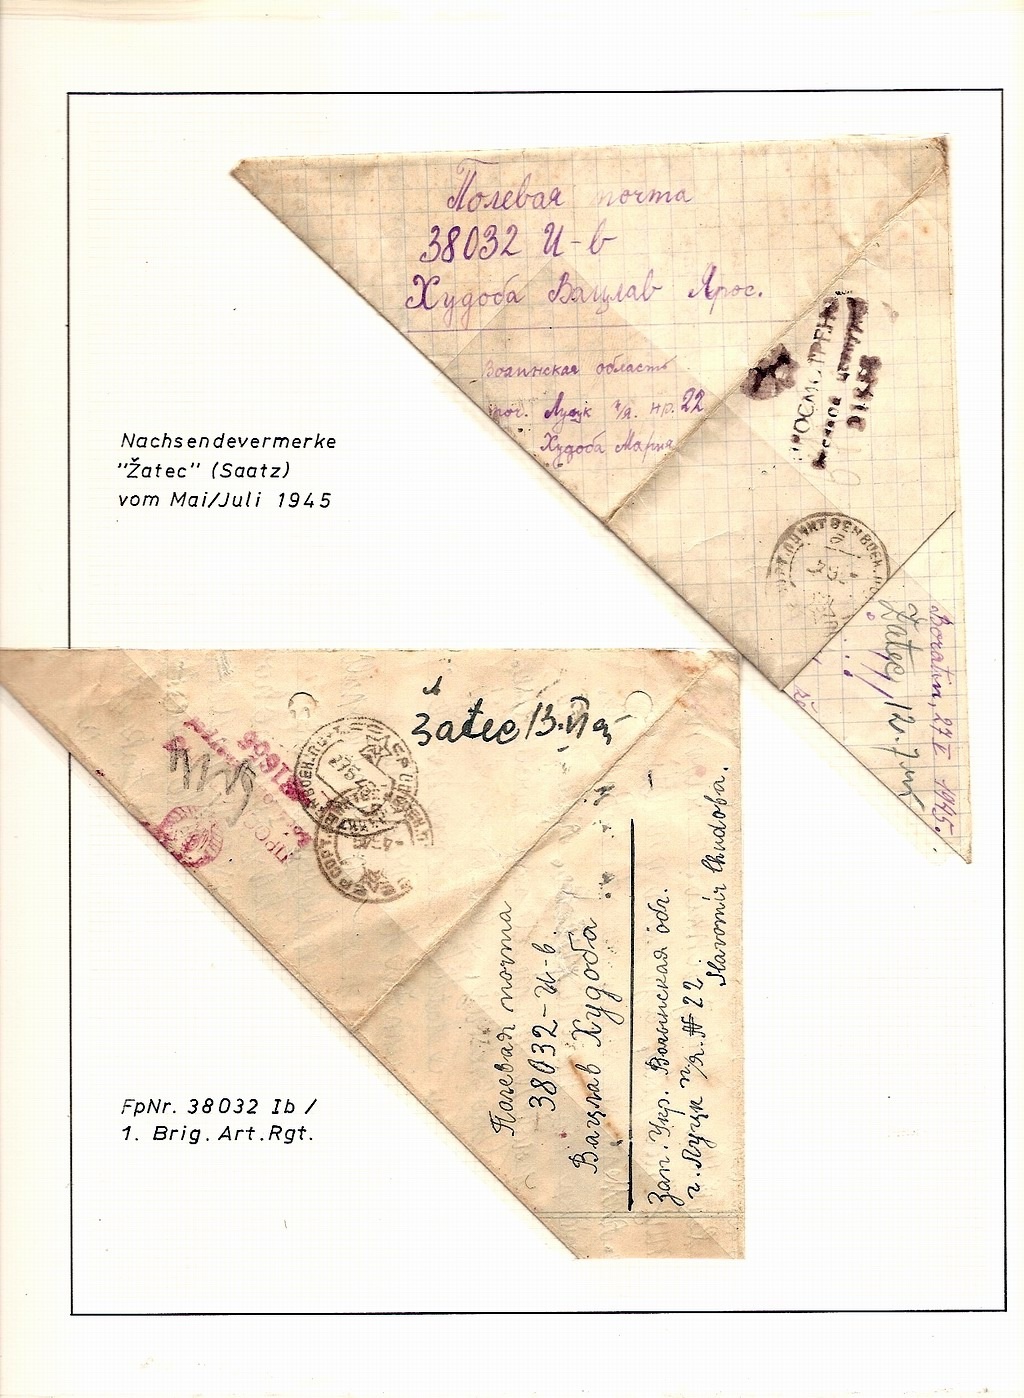 Полевая почта
38032 И-в
Худоба Вацлав Ярос.
Волинская область
Луцк п/я. нр. 22
Худоба Мария
ПРОСМОТРЕНО
военной цензурой
Žatec 12.7.
Boratin, 27.V. 1945.
Nachsendevermerke
"Žatec" (Saatz)
vom Mai/Juli 1945
Žatec 13.VI
Полевая почта
38032-И-в.
Вацлав Худоба
Зап. Укр. Волынская обл.
г. Луцк п/я. № 22.
Slavomír Chudoba.
FpNr. 38032 Ib /
1. Brig. Art. Rgt.